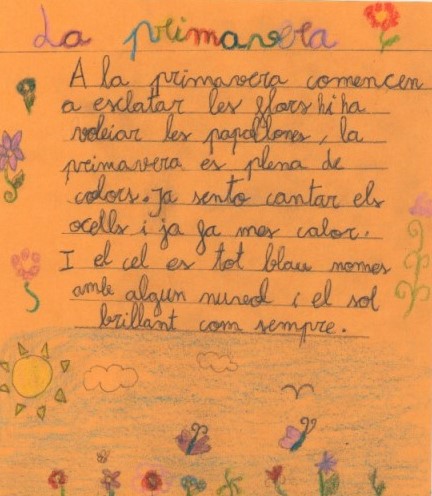 La primavera
A la primavera comencen
a esclatar les flors hi ha
voleiar les papellones, la
primavera es plena de
colors. Ja sento cantar els
ocells i ja fa mes calor.
I el cel es tot blau nomes
amb algun nuvol i el sol
brillant com sempre.